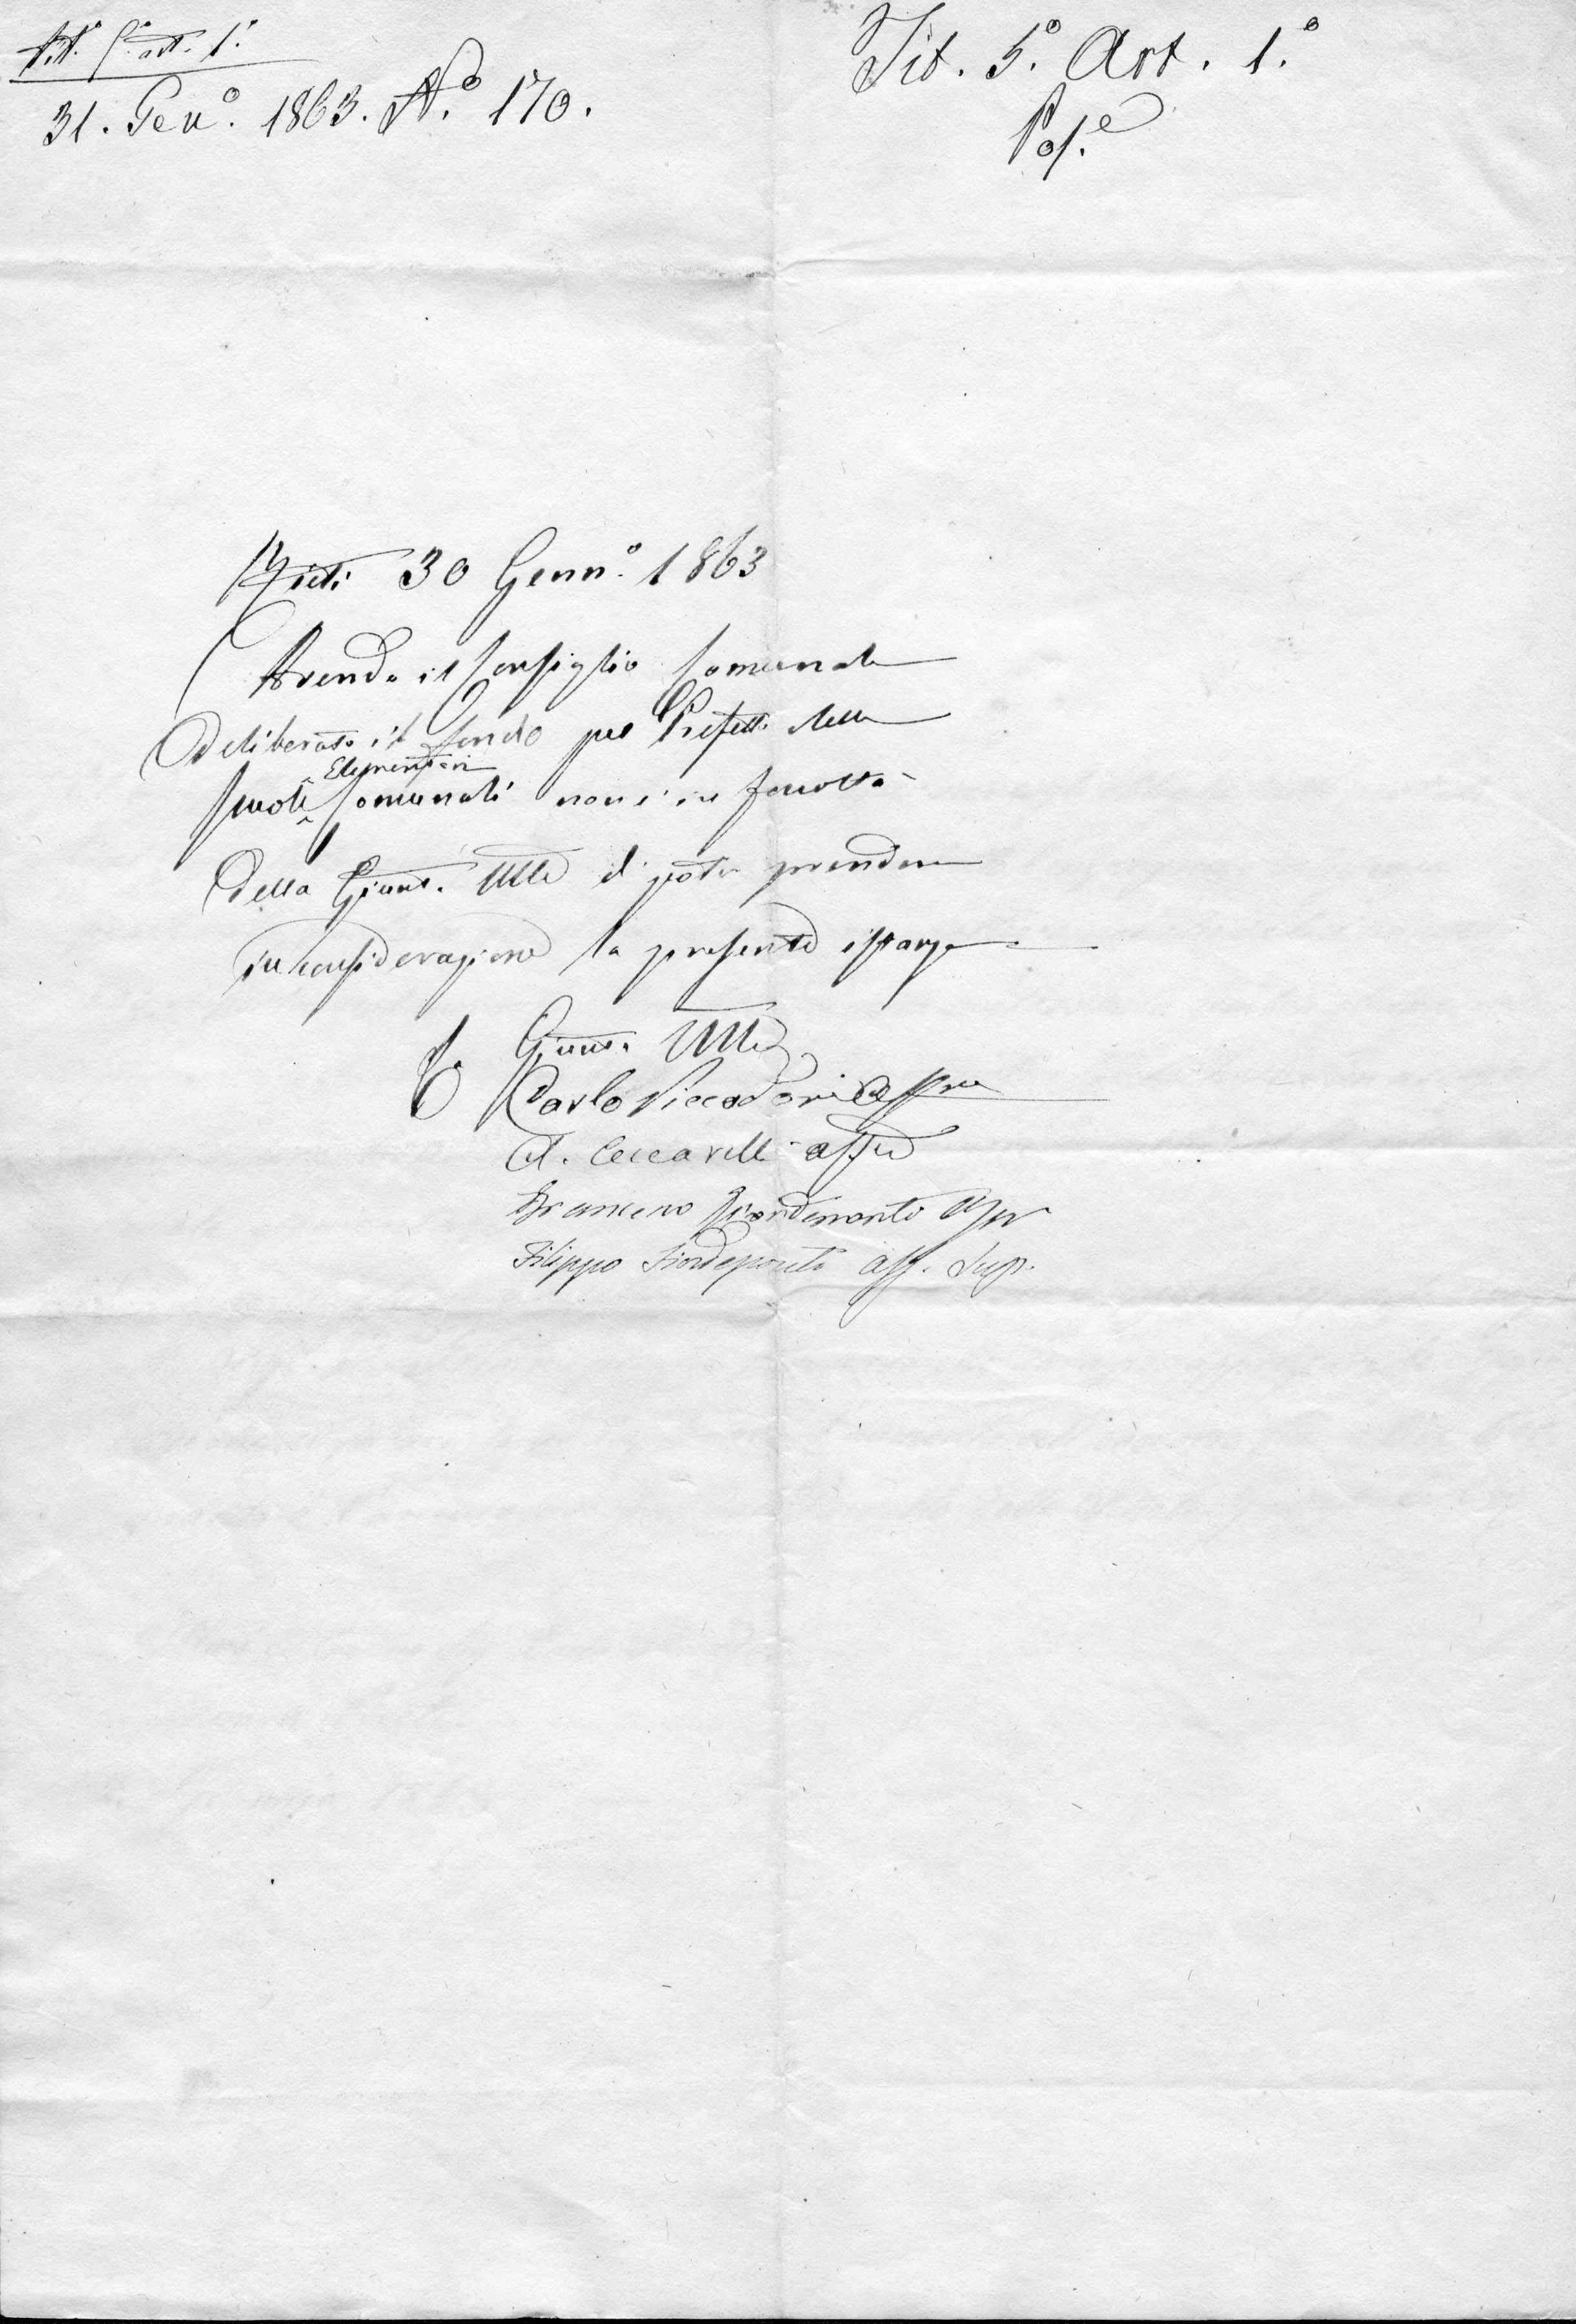 Tit.° 5° art. 1°
31. Gen.° 1863. N.° 170.
Tit. 5.° Art. 1.°
Pos.e
Rieti 30 Genn.° 1863
Avendo il Consiglio Comunale
deliberato il fondo pei Prefetti delle
Scuole Elementari Comunali non è in facoltà
della Giunta Mle di poter prendere
in considerazione la presente istanza
La Giunta Mle
Carlo Assre
A. Ceccarelli Asse
Francesco
Filippo Ass. Supp.